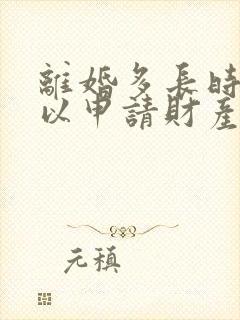 離婚多長時
以申請財產
元稹